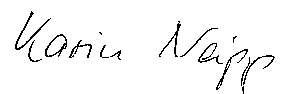 Karin Neipp